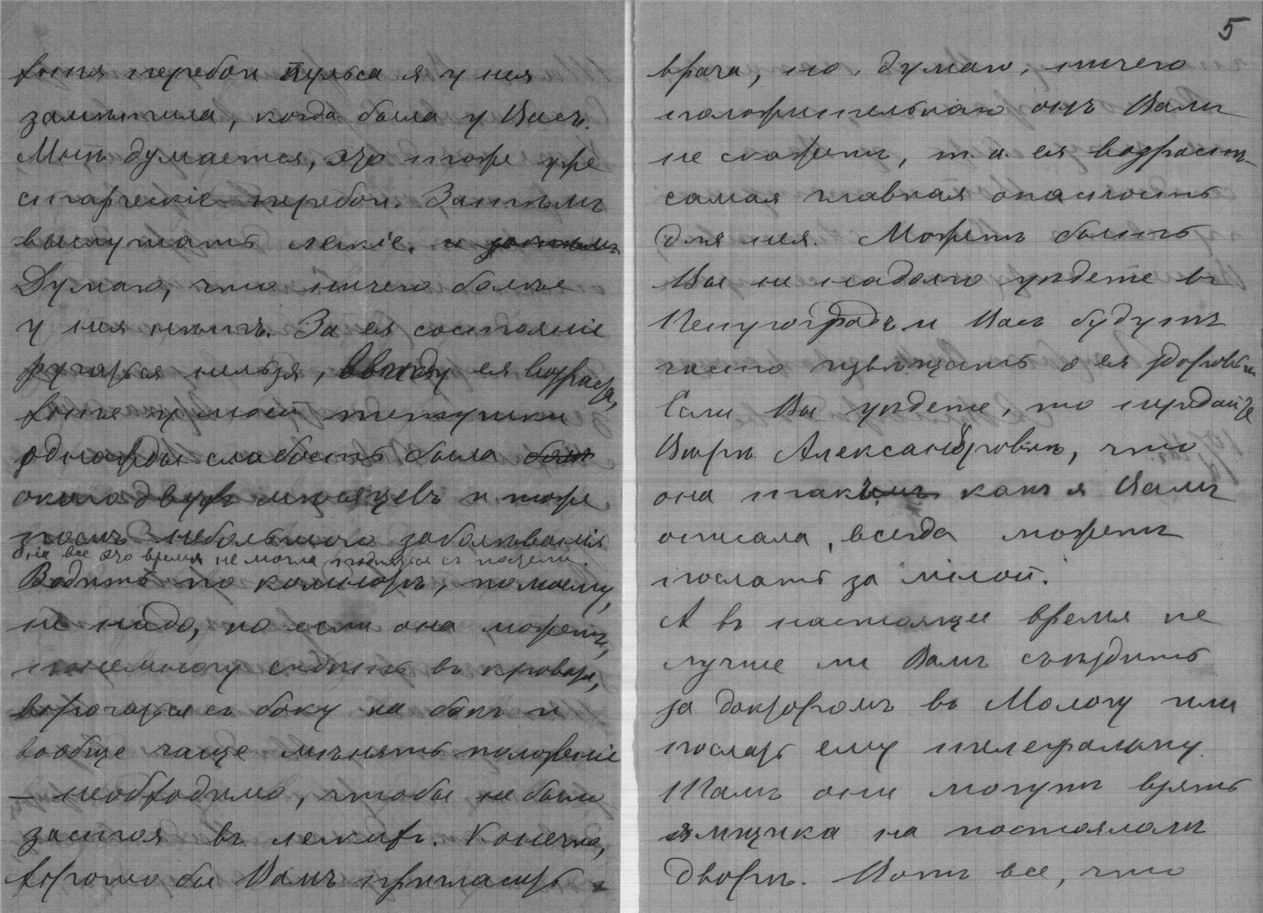 перебои пульса я у нея
замѣтила, когда была у Васъ.
Мнѣ думается, это тоже уже
старческіе перебои. Затѣмъ
выслушать легкіе. и затѣмъ
Думаю, что ничего болѣе
у нея нѣтъ. За ея состояніе
ручаться нельзя, ввиду ея возраста,
у моей тетушки
однажды слабость была
около двухъ мѣсяцевъ и тоже
послѣ небольшого заболѣванія
она все это время не могла подняться съ постели.
Водить по комнатѣ, помоему,
не надо, но если она можетъ,
понемногу сидѣть въ кровати,
ворочаться съ боку на бокъ и
вообще чаще мѣнять положеніе
— необходимо, чтобы не было
застоя въ легкихъ. Конечно,
хорошо бы Вамъ пригласить
5
врача, но, думаю, ничего
положительнаго онъ Вамъ
не скажетъ, т. к. ея возрастъ
самая главная опасность
для нея. Можетъ быть
Вы не надолго уѣдете въ
Петроградъ и Васъ будутъ
часто извѣщать о ея здоровьи.
Если Вы уѣдете, то передайте
Вѣрѣ Александровнѣ, что
она такъ какъ я Вамъ
описала, всегда можетъ
послать за мной.
А въ настоящее время не
лучше ли Вамъ съѣздить
за докторомъ въ Мологу или
послать ему телефонку.
Тамъ они могутъ взять
ямщика на постояломъ
дворѣ. Вотъ все, что